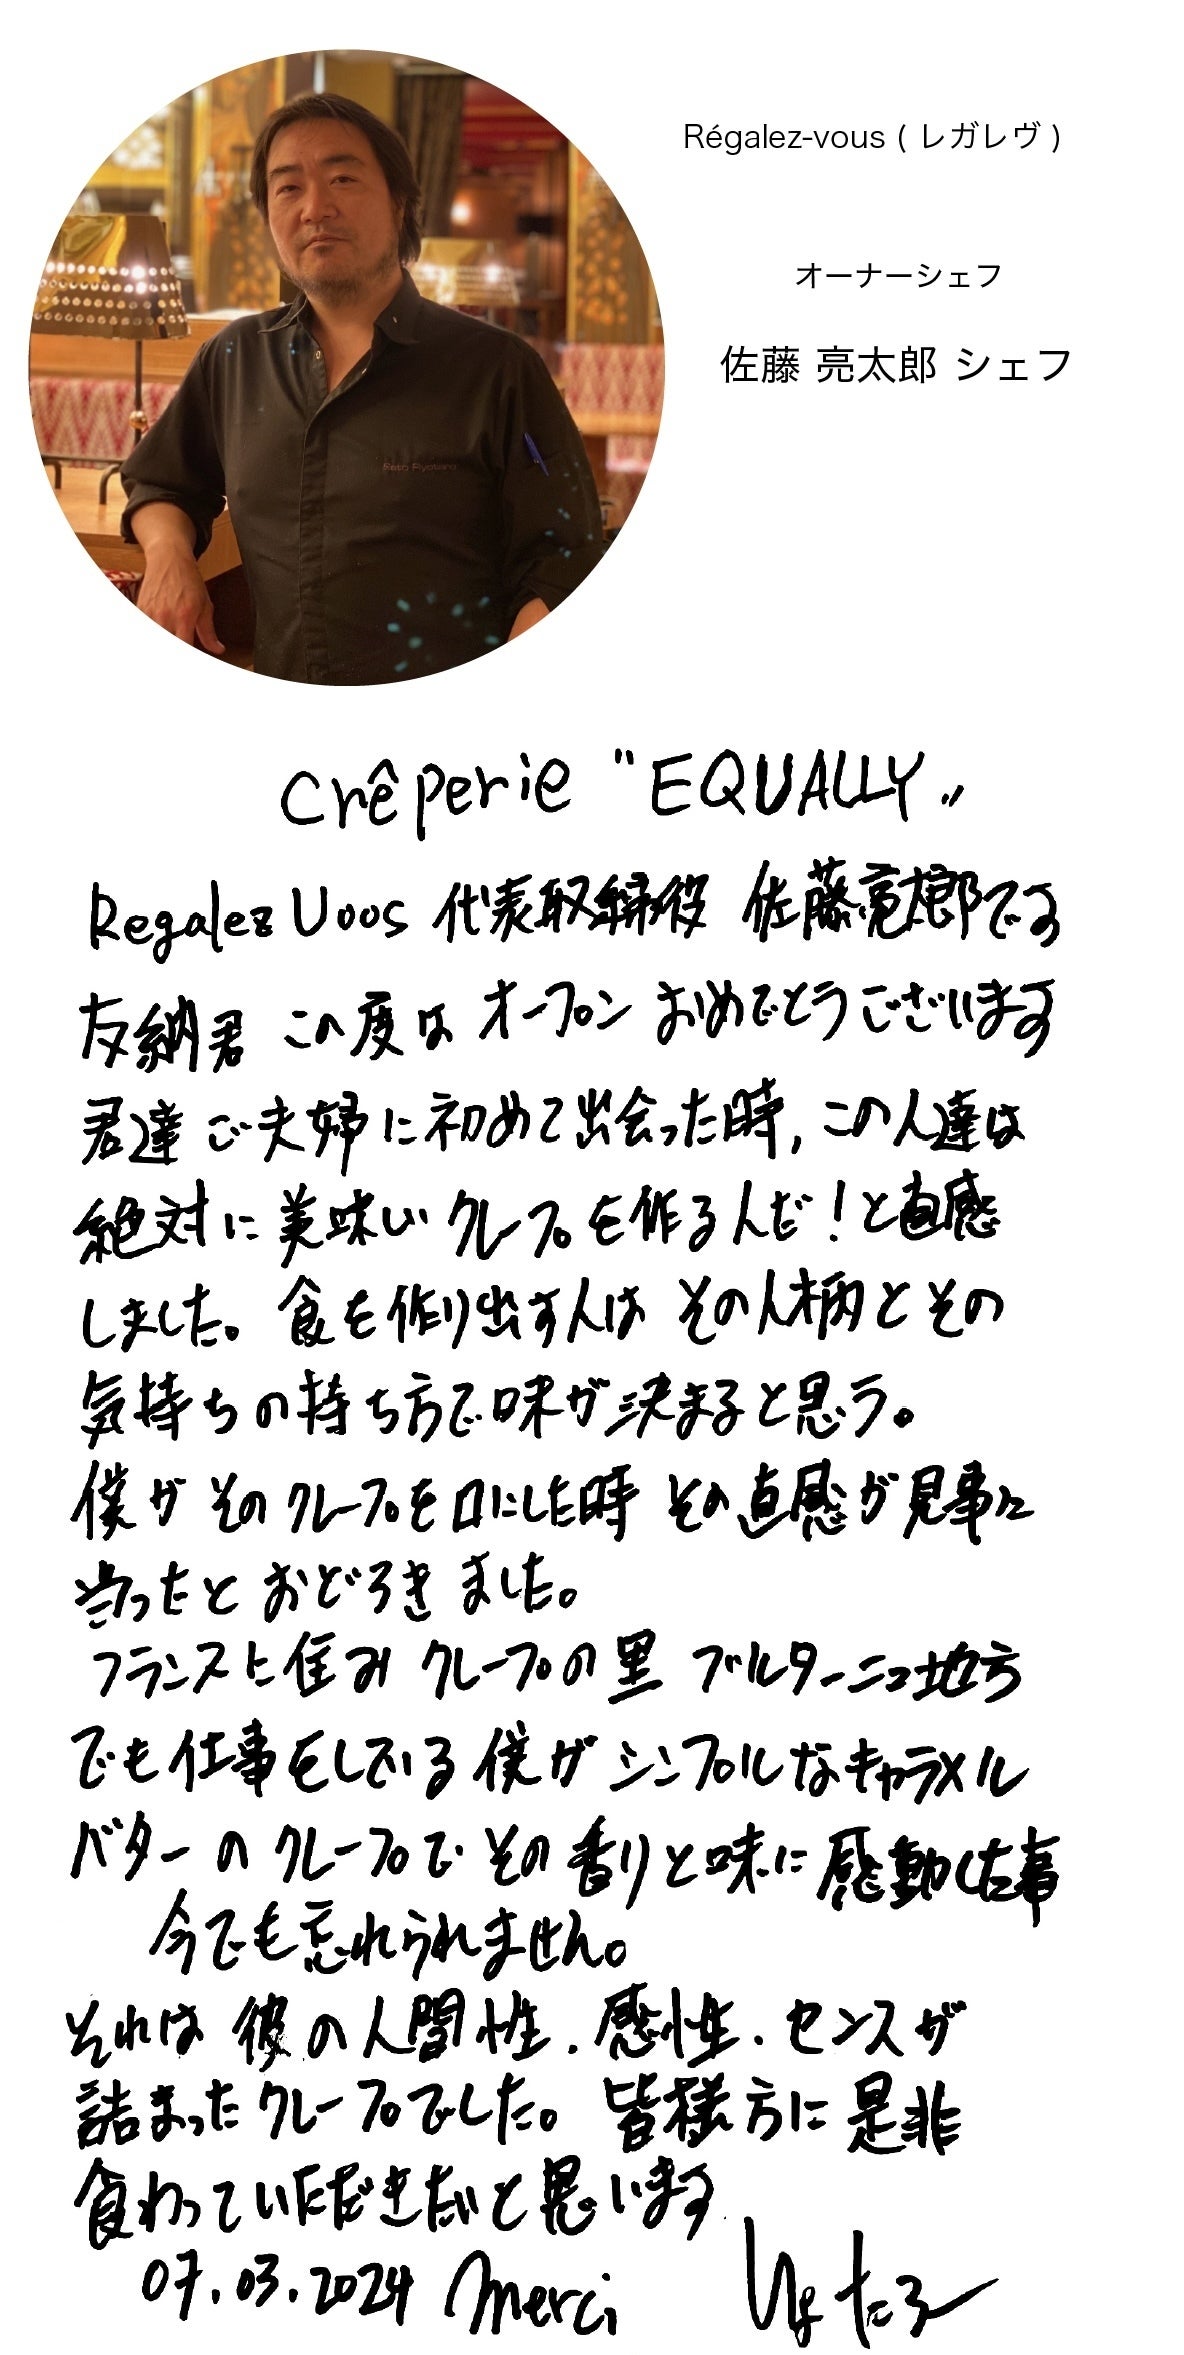 Régalez-vous ( レガレヴ )
オーナーシェフ
佐藤 亮太郎 シェフ
Sato Ryotaro
Crêperie "EQUALLY"
Regalez Uoos 代表取締役 佐藤亮太郎です
友納君 この度は オープン おめでとうございます
君達 ご夫婦に初めて出会った時, この人達は
絶対に美味しいクレープを作るんだ!と直感
しました。食を作り出す人は その人柄とその
気持ちの持ち方で味が決まると思う。
僕が そのクレープを口にした時 その直感が見事に
当ったと おどろきました。
フランスに住み クレープの里 ブルターニュ地方
でも仕事をしている僕が シンプルなキャラメル
バターの クレープで その香りと味に感動した事
今でも忘れられません。
それは 彼の人間性.感性.センスが
詰まったクレープでした。皆様方に是非
食わっていただきたいと思います
07.03.2024 Merci